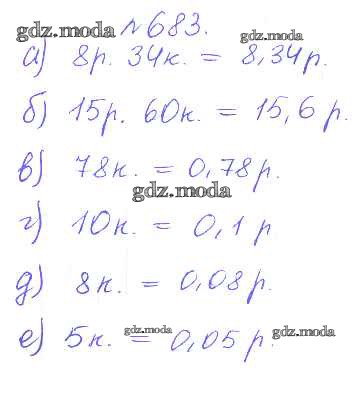 gdz.moda №683. gdz.moda
а) 8р. 34к. = 8,34р.
б) 15р. 60к. = 15,6 р.
в) 78к. = 0,78р.
gdz.moda
г) 10к. = 0,1 р
д) 8к. = 0,08р.
е) 5к. = 0,05 р.
gdz.moda gdz.moda